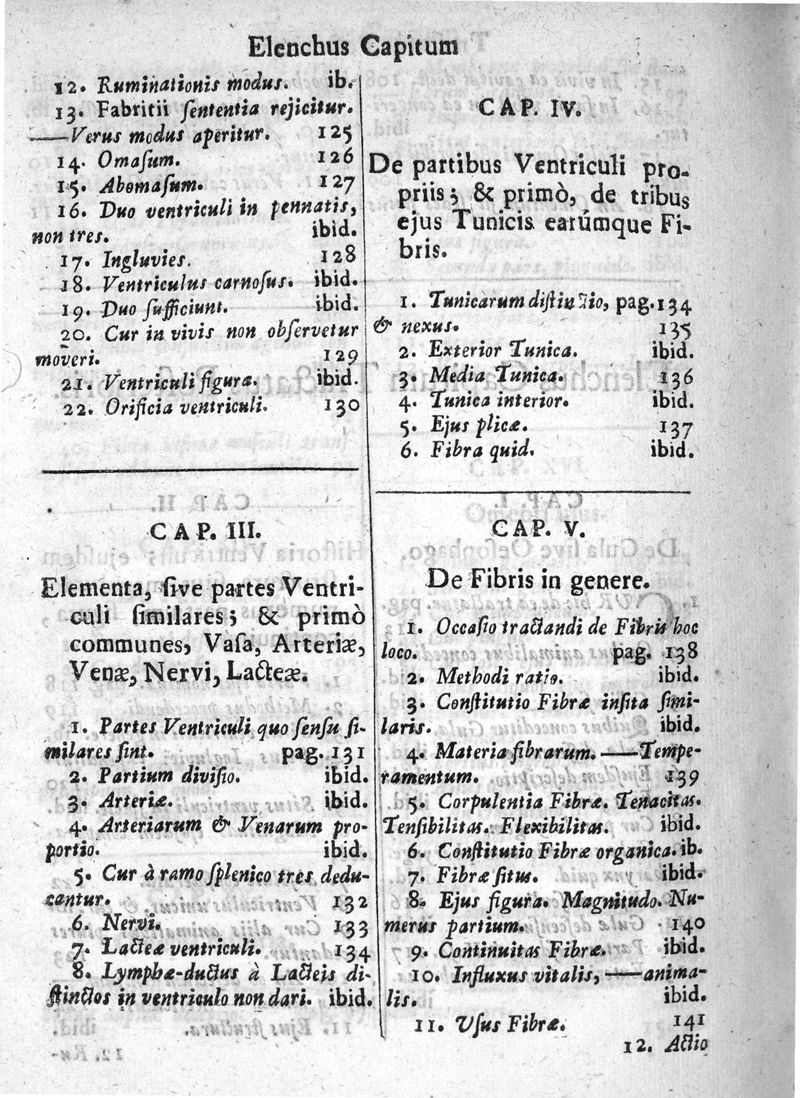 Elenchus Capitum
12. Ruminationis modus. ib.
13. Fabritii ſententia rejicitur.
—Verus modus aperitur. 125
14. Omaſum. 126
15. Abomaſum. 127
16. Duo ventriculi in pennatis,
non tres. ibid.
17. Ingluvies. 128
18. Ventriculus carnoſus. ibid.
19. Duo ſufficiunt. ibid.
20. Cur in vivis non obſervetur
moveri. 129
21. Ventriculi figura. ibid.
22. Orificia ventriculi. 130
CAP. III.
Elementa, ſive partes Ventri-
culi ſimilares; & primò
communes, Vaſa, Arteriæ,
Venæ, Nervi, Lacteæ.
1. Partes Ventriculi quo ſenſu ſi-
milares ſint. pag. 131
2. Partium diviſio. ibid.
3. Arteriæ. ibid.
4. Arteriarum & Venarum pro-
portio. ibid.
5. Cur à ramo ſplenico tres dedu-
cantur. 132
6. Nervi. 133
7. Lacteæ ventriculi. 134
8. Lymphæ-ductus à Lacteis di-
ſtinctos in ventriculo non dari. ibid.
CAP. IV.
De partibus Ventriculi pro-
priis; & primò, de tribus
ejus Tunicis earúmque Fi-
bris.
1. Tunicarum diſtinctio, pag. 134
& nexus. 135
2. Exterior Tunica. ibid.
3. Media Tunica. 136
4. Tunica interior. ibid.
5. Ejus plicæ. 137
6. Fibra quid. ibid.
CAP. V.
De Fibris in genere.
1. Occaſio tractandi de Fibris hoc
loco. pag. 138
2. Methodi ratio. ibid.
3. Conſtitutio Fibræ inſita ſimi-
laris. ibid.
4. Materia fibrarum. —Tempe-
ramentum. 139
5. Corpulentia Fibræ. Tenacitas.
Tenſibilitas. Flexibilitas. ibid.
6. Conſtitutio Fibræ organica. ib.
7. Fibræ ſitus. ibid.
8. Ejus figura. Magnitudo. Nu-
merus partium. 140
9. Continuitas Fibræ. ibid.
10. Influxus vitalis, —anima-
lis. ibid.
11. Uſus Fibræ. 141
12. Actio